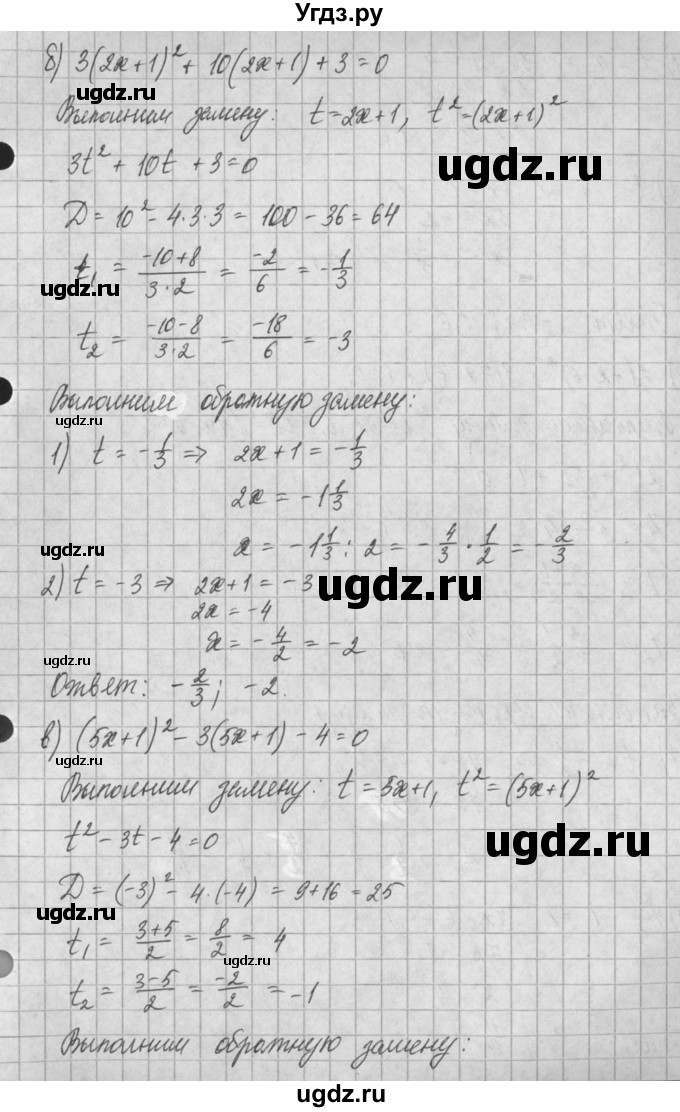 Угдз.ру
б) 3(2x+1)² + 10(2x+1) + 3 = 0
ugdz.ru
Выполним замену: t = 2x+1, t² = (2x+1)²
ugdz.ru
3t² + 10t + 3 = 0
D = 10² - 4·3·3 = 100 - 36 = 64
t₁ = (-10+8)/(3·2) = -2/6 = -1/3
ugdz.ru
t₂ = (-10-8)/(3·2) = -18/6 = -3
Выполним обратную замену:
ugdz.ru
1) t = -1/3 ⇒ 2x+1 = -1/3
2x = -1 1/3
x = -1 1/3 : 2 = -4/3 · 1/2 = -2/3
ugdz.ru
2) t = -3 ⇒ 2x+1 = -3
ugdz.ru
2x = -4
x = -4/2 = -2
ugdz.ru
Ответ: -2/3; -2.
в) (5x+1)² - 3(5x+1) - 4 = 0
ugdz.ru
Выполним замену: t = 5x+1, t² = (5x+1)²
t² - 3t - 4 = 0
ugdz.ru
D = (-3)² - 4·(-4) = 9+16 = 25
ugdz.ru
t₁ = (3+5)/2 = 8/2 = 4
ugdz.ru
t₂ = (3-5)/2 = -2/2 = -1
Выполним обратную замену:
ugdz.ru